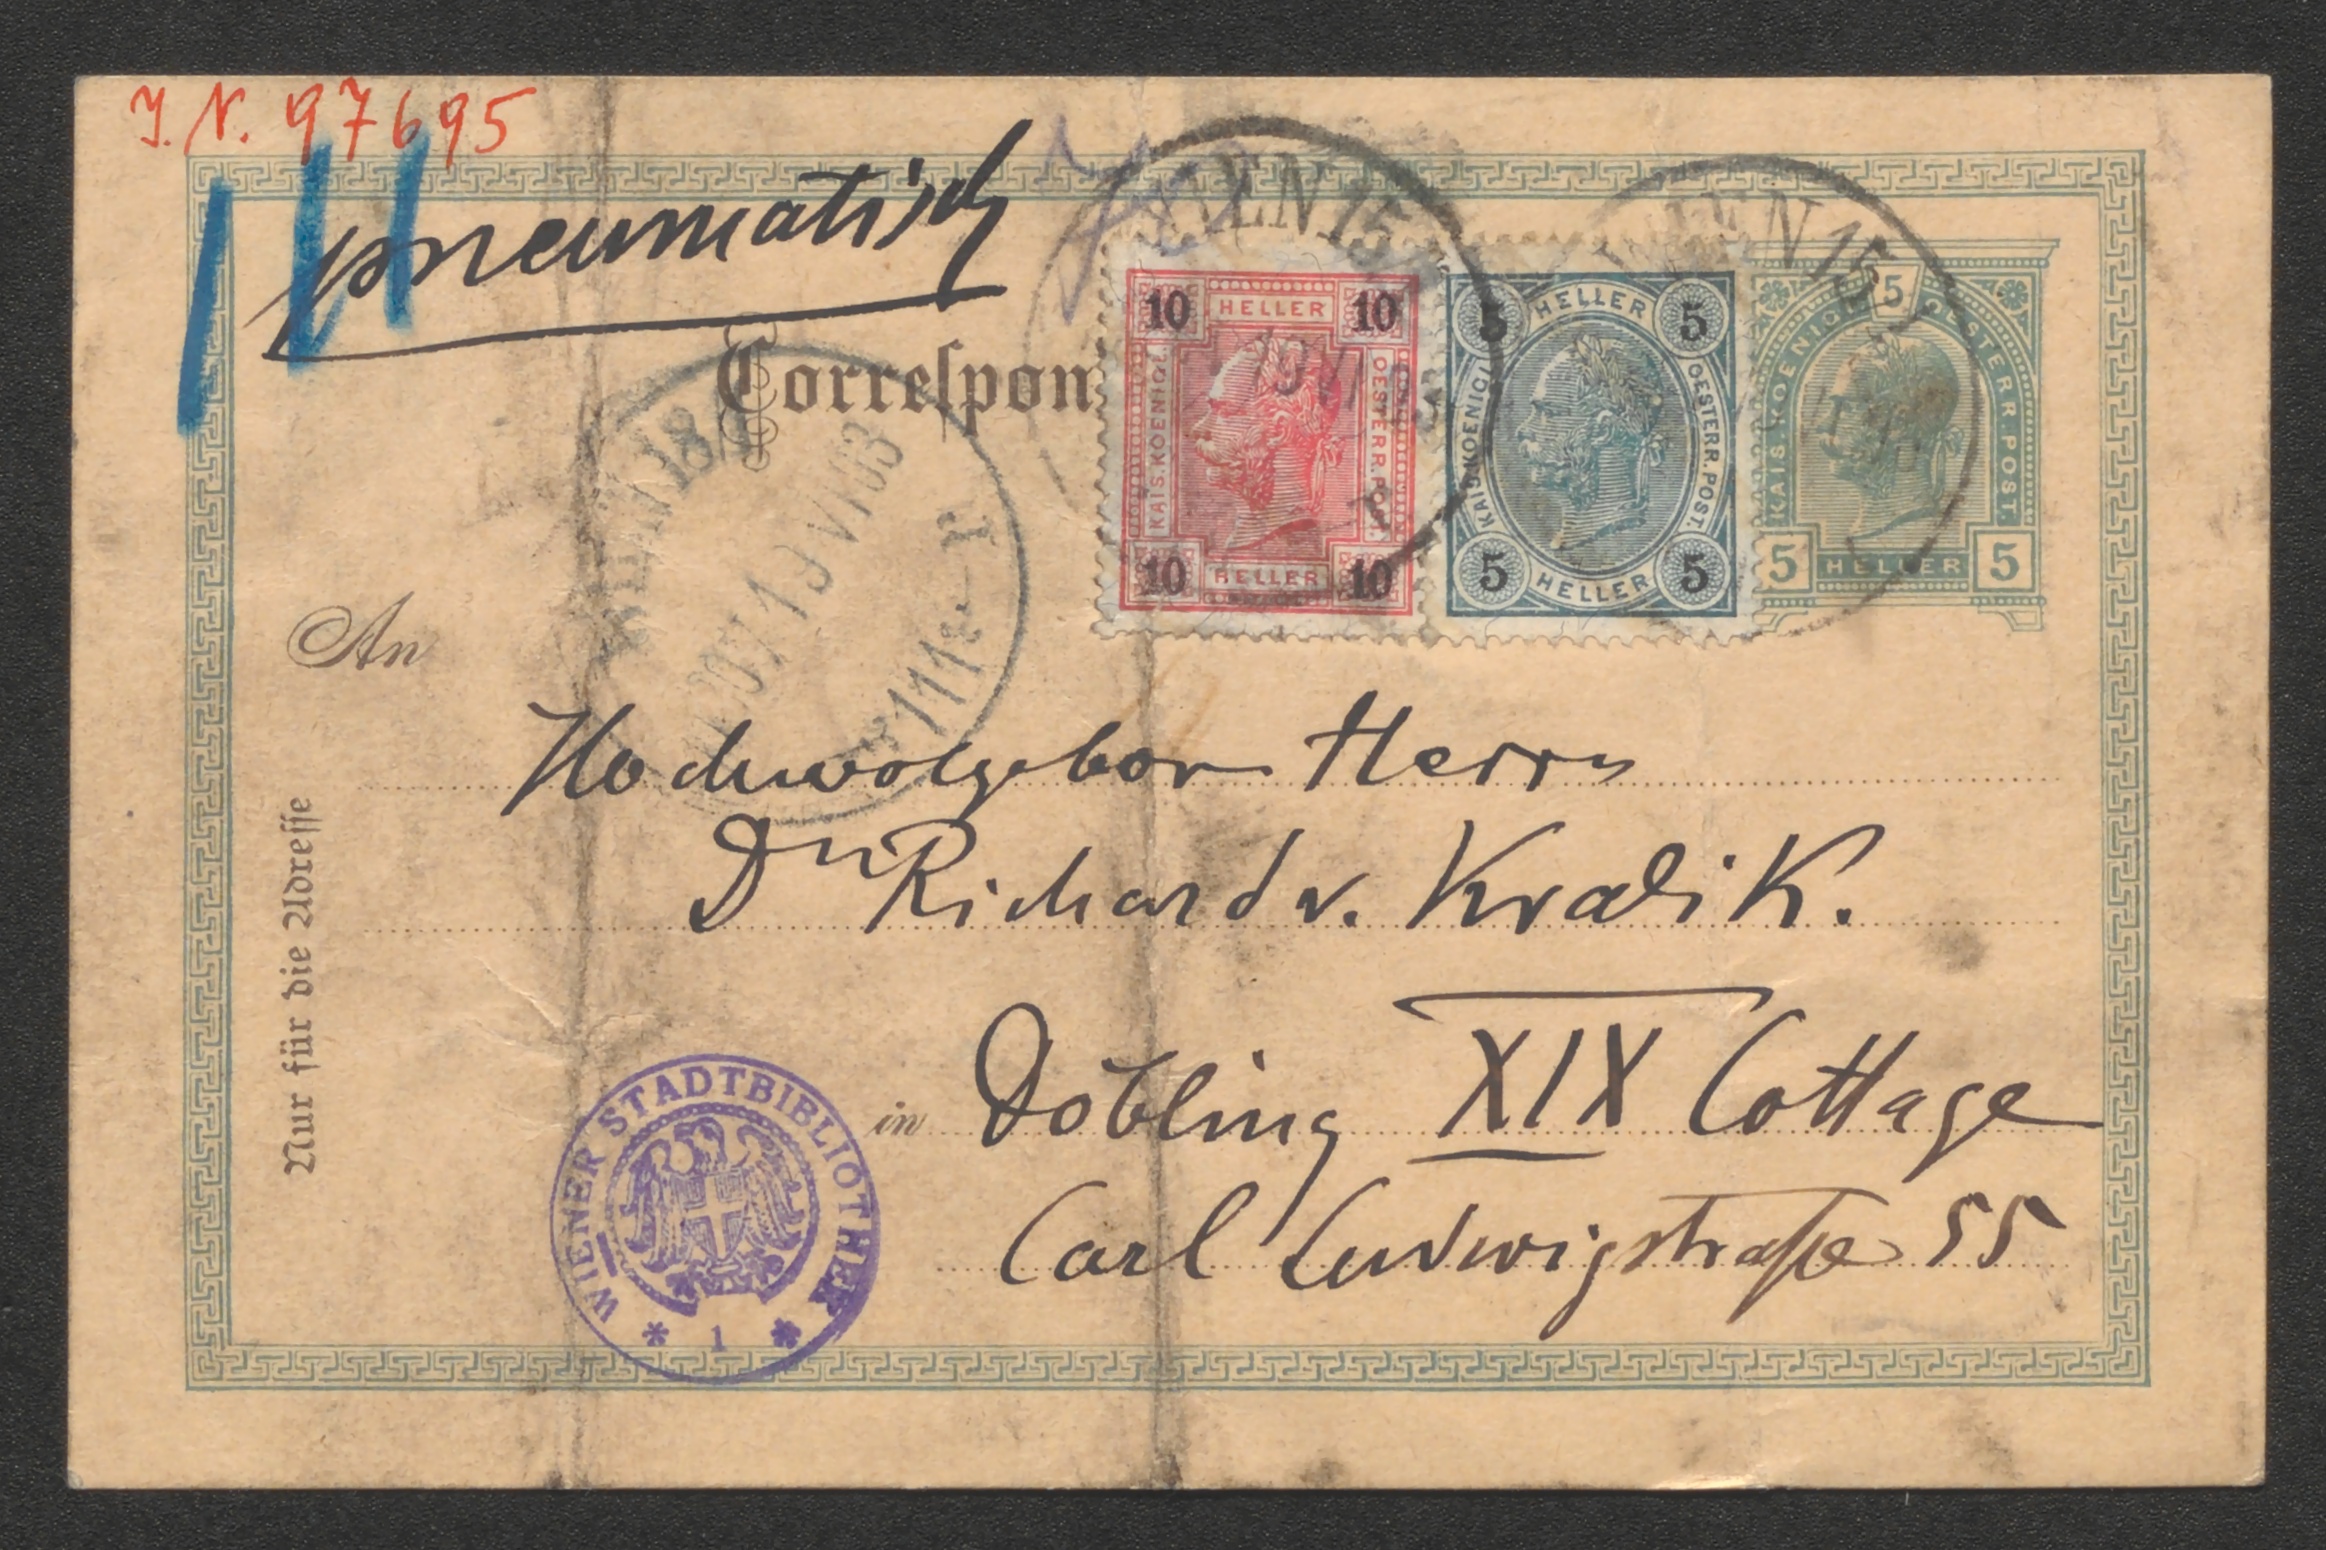 J. N. 97695
pneumatisch
Correspon
WIEN 15
WIEN 15
10 HELLER 10
KAIS. KOENIGL.
OESTERR. POST.
10 HELLER 10
5 HELLER 5
KAIS. KOENIGL.
OESTERR. POST.
5 HELLER 5
5
KAIS. KOENIGL. OESTERR. POST.
5 HELLER 5
WIEN 18/1
19 VI 03
111
An
Hochwolgebor Herrn
Dr Richard v. Kralik.
in Döbling XIX Cottage
Carl Ludwigstraße 55
Nur für die Adresse
WIENER STADTBIBLIOTHEK
* 1 *